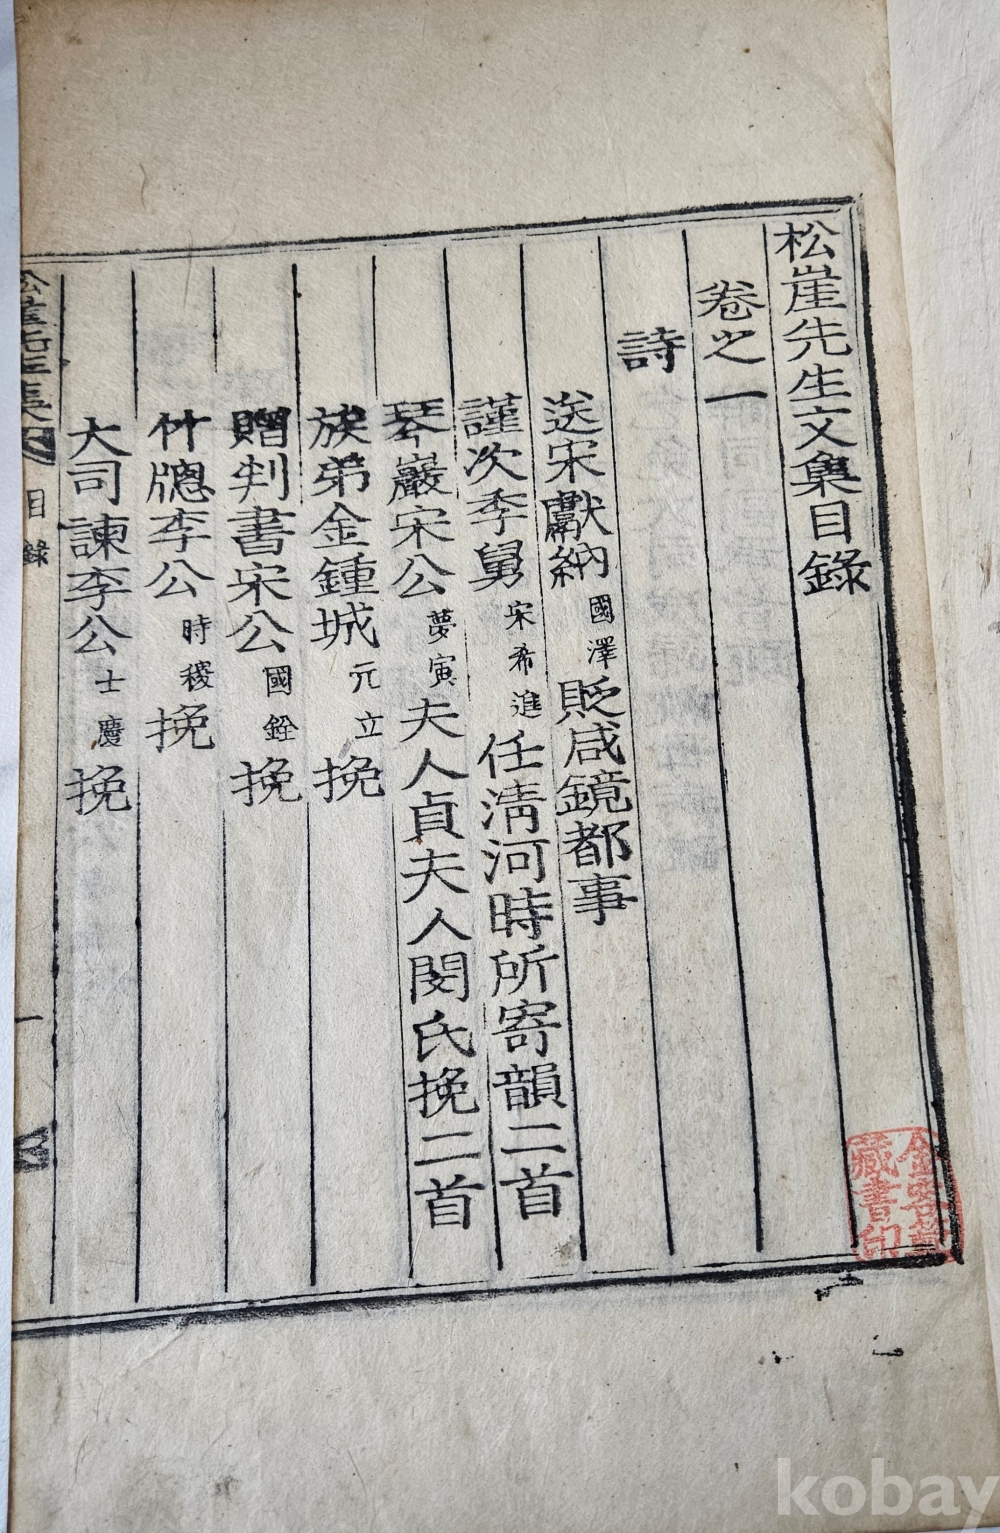 松崖先生文集目錄
卷之一
詩
送宋獻納國澤貶咸鏡都事
謹次季舅宋希進任淸河時所寄韻二首
琴巖宋公夢寅夫人貞夫人閔氏挽二首
族弟金鍾城元立挽
贈判書宋公國銓挽
竹牕李公時稷挽
大司諫李公士慶挽
松崖先生集
目錄
一
藏書印
kobay